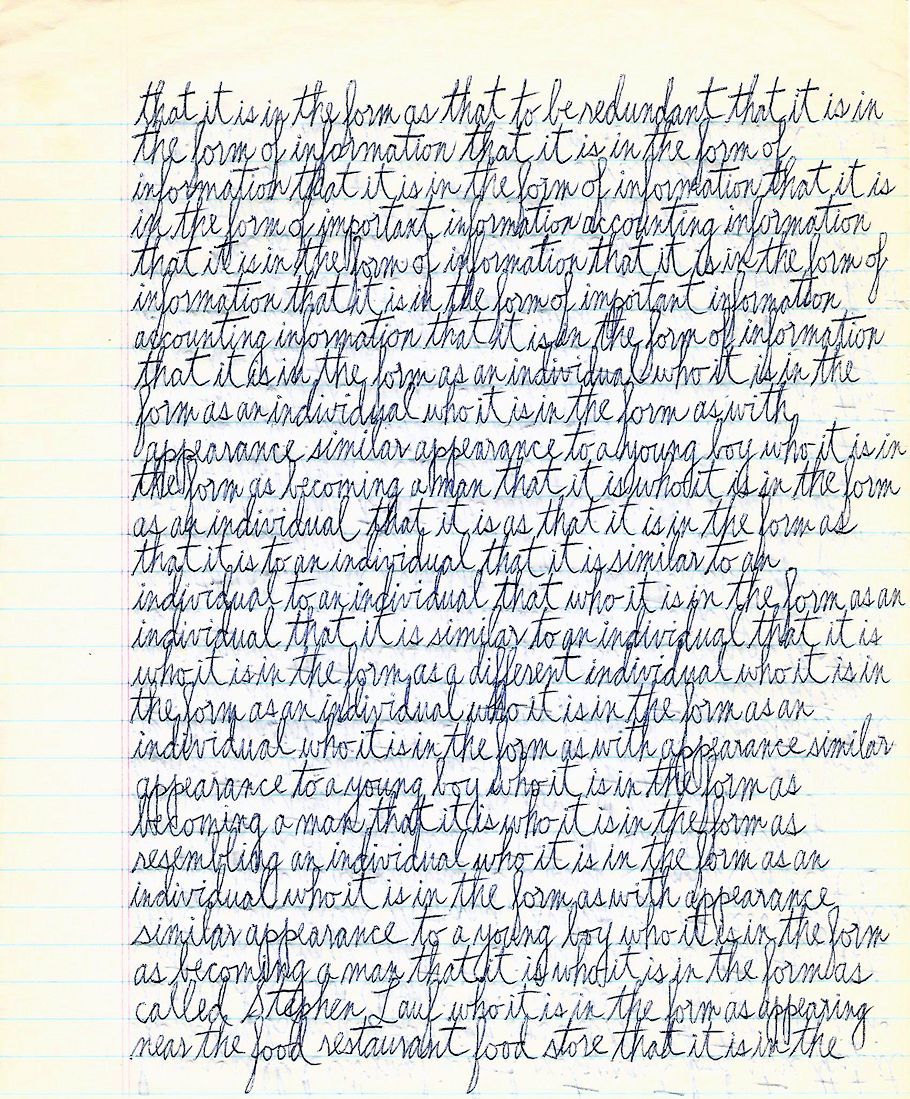 that it is in the form as that to be redundant that it is in
the form of information that it is in the form of
information that it is in the form of information that it is
in the form of important information accounting information
that it is in the form of information that it is in the form of
information that it is in the form of important information
accounting information that it is in the form of information
that it is in the form as an individual who it is in the
form as an individual who it is in the form as with
appearance similar appearance to a young boy who it is in
the form as becoming a man that it is who it is in the form
as an individual that it is as that it is in the form as
that it is to an individual that it is similar to an
individual to an individual that who it is in the form as an
individual that it is similar to an individual that it is
who it is in the form as a different individual who it is in
the form as an individual who it is in the form as an
individual who it is in the form as with appearance similar
appearance to a young boy who it is in the form as
becoming a man that it is who it is in the form as
resembling an individual who it is in the form as an
individual who it is in the form as with appearance
similar appearance to a young boy who it is in the form
as becoming a man that it is who it is in the form as
called Stephen who it is in the form as appearing
near the food restaurant food store that it is in the